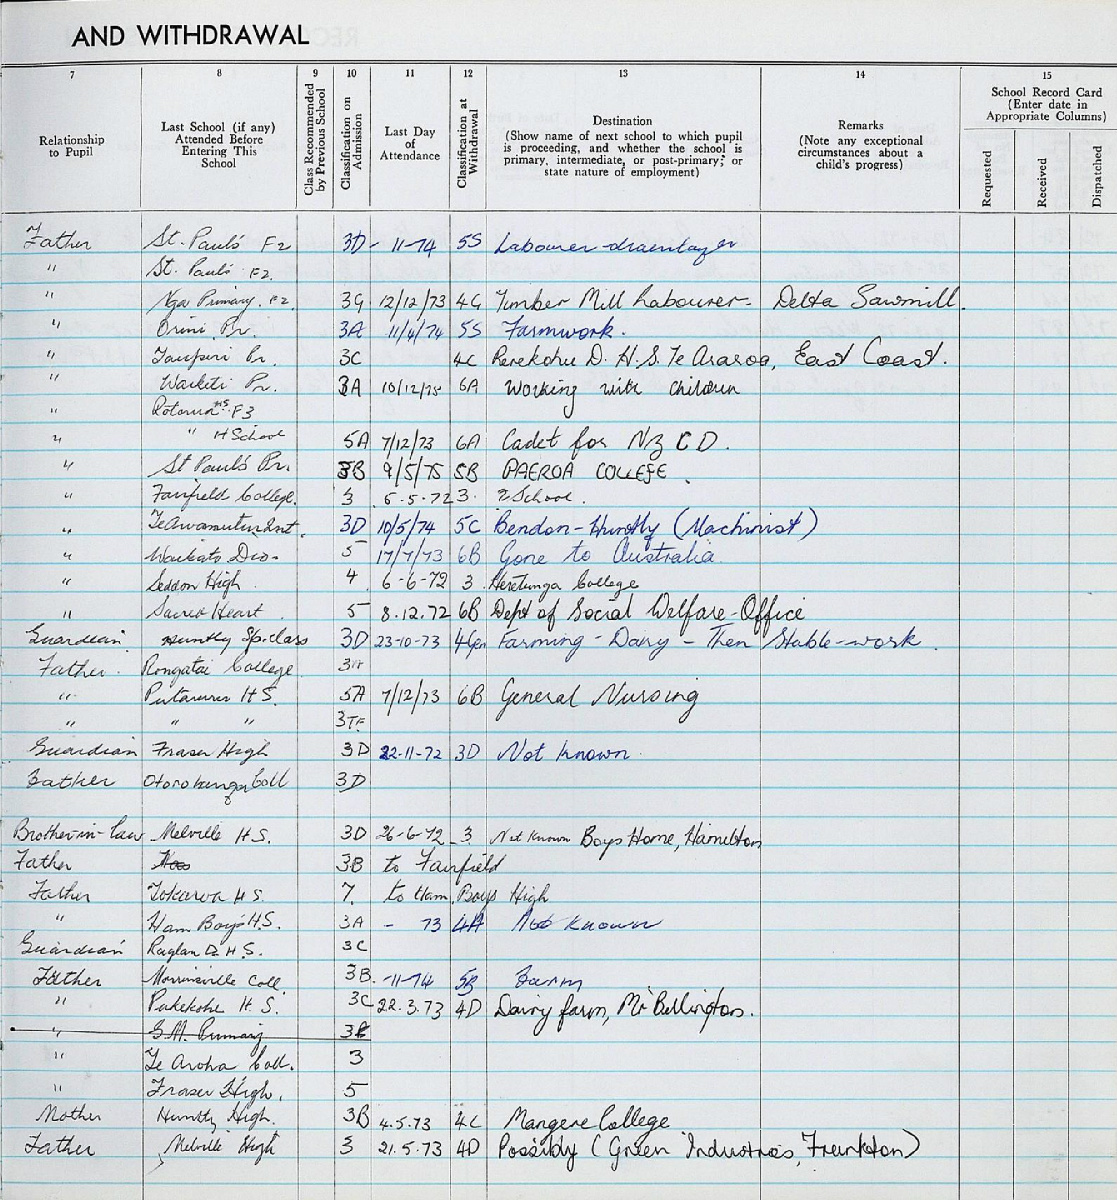 AND WITHDRAWAL
7 8 9 10 11 12 13 14 15
Relationship to Pupil
Last School (if any) Attended Before Entering This School
Class Recommended by Previous School
Classification on Admission
Last Day of Attendance
Classification at Withdrawal
Destination (Show name of next school to which pupil is proceeding, and whether the school is primary, intermediate, or post-primary; or state nature of employment)
Remarks (Note any exceptional circumstances about a child's progress)
School Record Card (Enter date in Appropriate Columns)
Requested
Received
Dispatched
Father St. Paul's F2 3D - 11-74 5S Labourer-drainlayer
" St. Paul's F2
" Primary F2 3G 12/12/73 4G Timber Mill Labourer - Delta Sawmill
" Orini Pr. 3A 11/4/74 5S Farmwork.
" Taupiri Pr. 3C 4C Rerekohu D.H.S. Te Araroa, East Coast.
" Waikiti Pr. 3A 10/12/75 6A Working with Children
" Rotorua HS F3
" " H School 5A 7/12/73 6A Cadet for NZ CD.
" St Paul's Pr. 3B 9/5/75 5B PAEROA COLLEGE.
" Fairfield College. 3 6-5-72 3. ? School.
" Te Awamutu Int. 3D 10/5/74 5C Bendon-Huntly (Machinist)
" Waikato Dio- 5 17/7/73 6B Gone to Australia.
" Seddon High 4 6-6-72 3 Heretunga College
" Sacred Heart 5 8.12.72 6B Dept of Social Welfare-Office
Guardian Huntly Sp. class 3D 23-10-73 4Gen Farming - Dairy - Then Stable-work.
Father. Rongatai College
" Putaruru H S. 5A 7/12/73 6B General Nursing
" " " 3TF
Guardian Fraser High 3D 22-11-72 3D Not Known.
Father Otorohanga Coll 3D
Brother-in-law Melville H S. 3D 26-6-72 3 Not Known Boys Home, Hamilton
Father 3B to Fairfield
Father Tokaroa H S. 7. to Ham. Boys High
" Ham Boys H.S. 3A - 73 4A Not Known
Guardian Raglan D. H S. 3C
Father Morrinsville Coll. 3B. -11-74 5B Farm
" Pukekohe H S. 3C 22.3.73 4D Dairy farm, Mr Bullington.
" G.M. Primary
" Te Aroha Coll. 3
" Fraser High. 5
Mother Huntly High. 3B 4.5.73 4C Mangere College
Father Melville High 3 21.5.73 4D Possibly (Green Industries, Frankton)